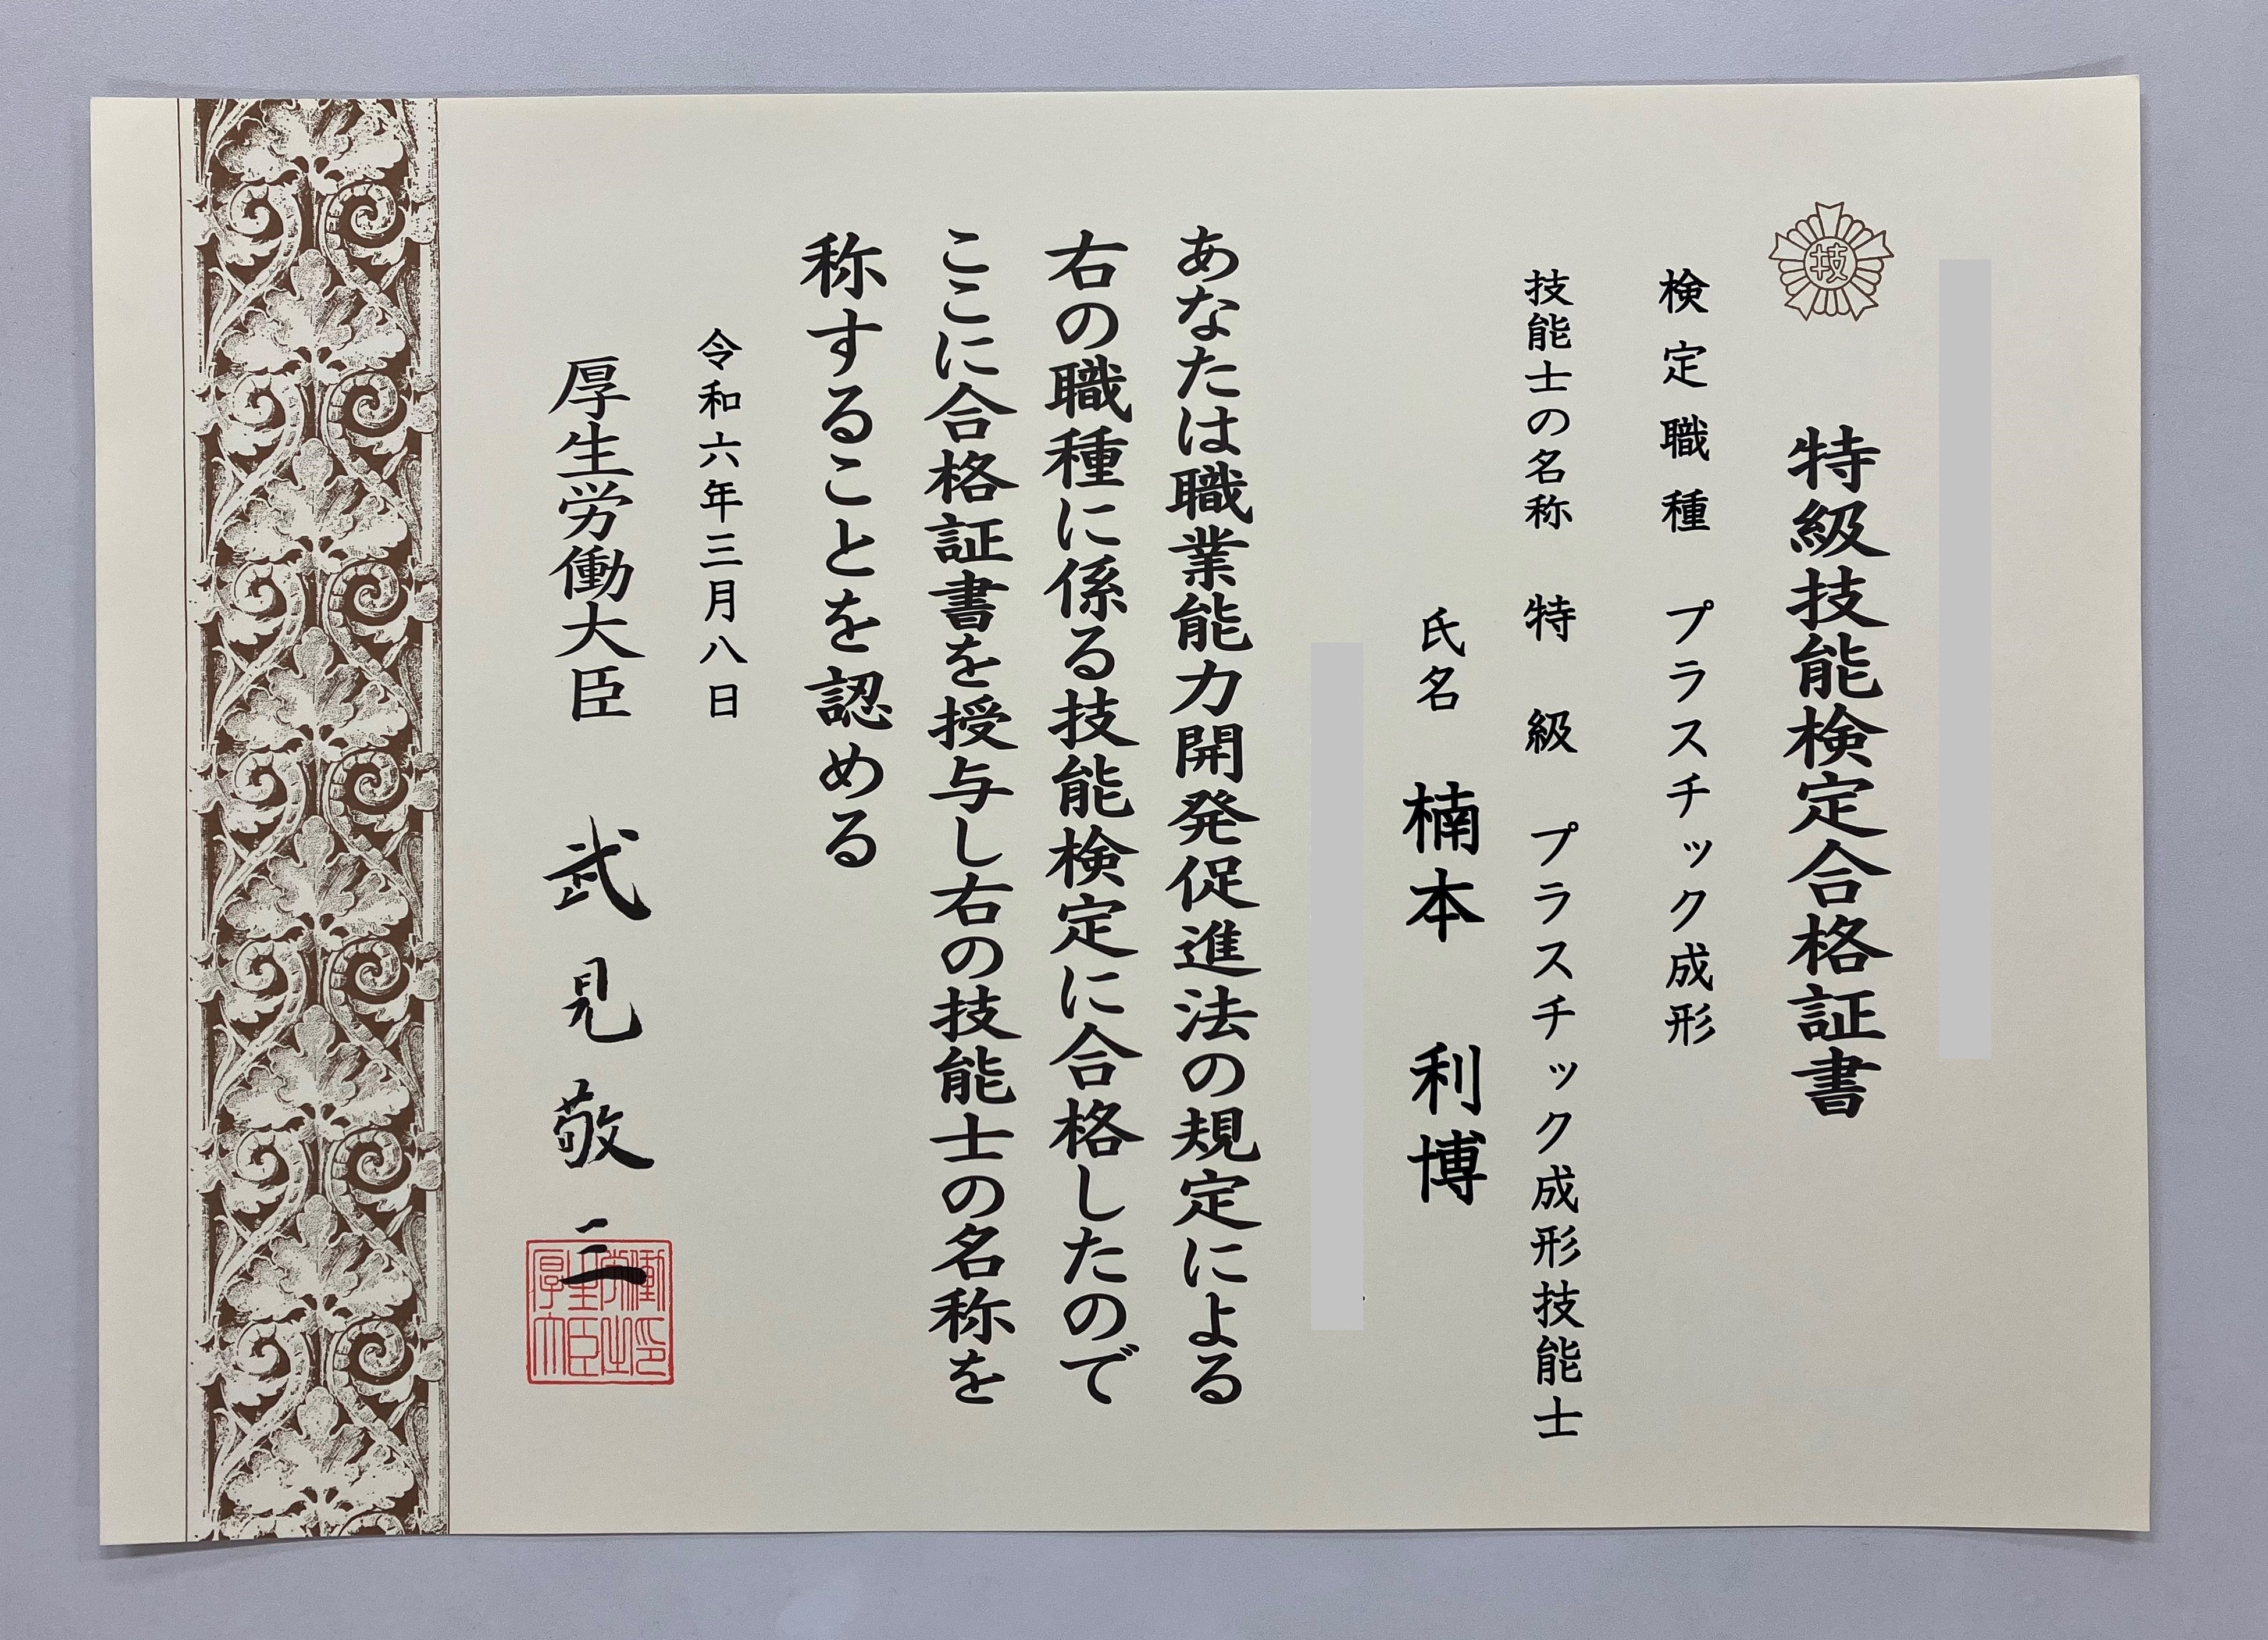 技
特級技能検定合格証書
検定職種 プラスチック成形
技能士の名称 特級 プラスチック成形技能士
氏名 楠本 利博
あなたは職業能力開発促進法の規定による
右の職種に係る技能検定に合格したので
ここに合格証書を授与し右の技能士の名称を
称することを認める
令和六年三月八日
厚生労働大臣 武見敬三
厚生労働大臣之印